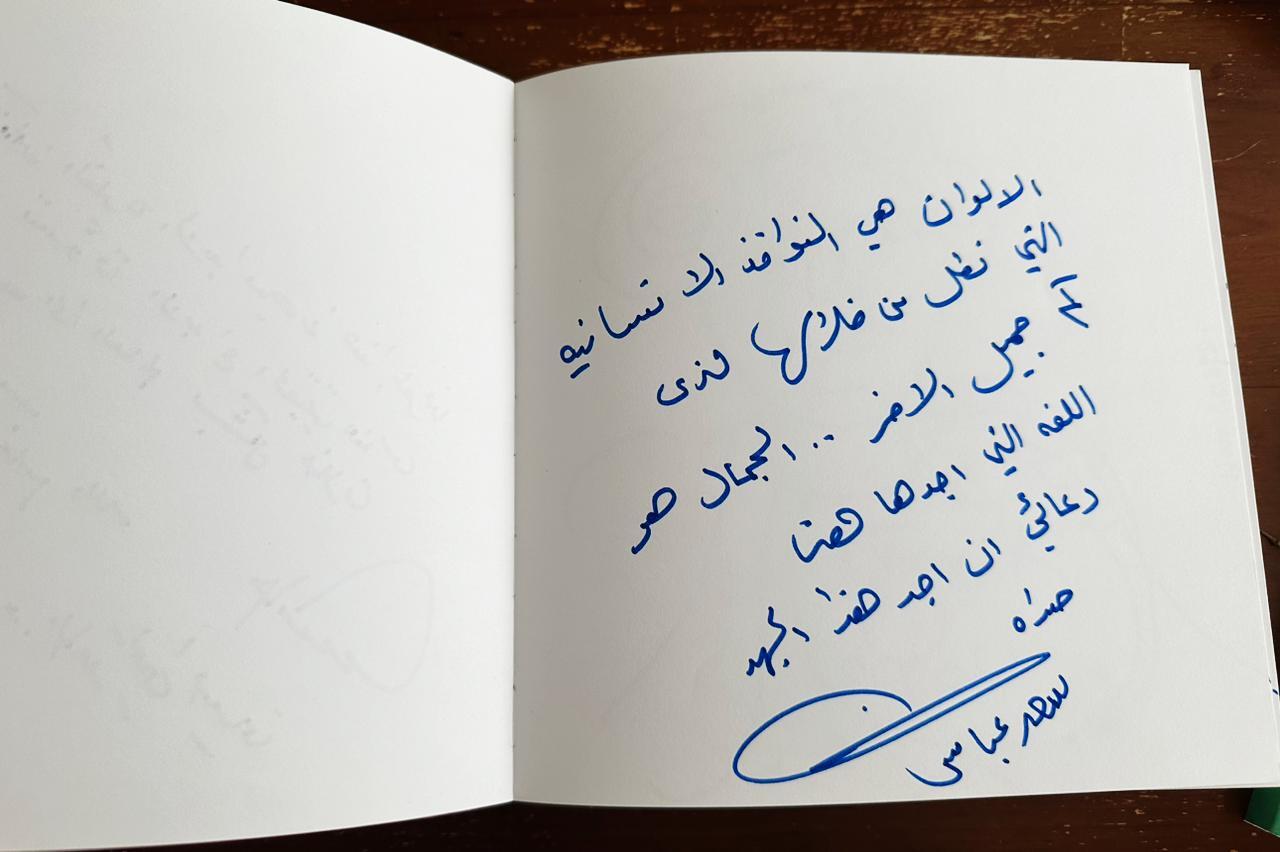 الالوان هي النوافذ الانسانيه
التي نطل من خلالها لنرى
كم جميل الاخر .. الجمال هو
اللغه التي اجدها هنا
دعائي ان اجد هذا الجهد
صداه
سعد عباس